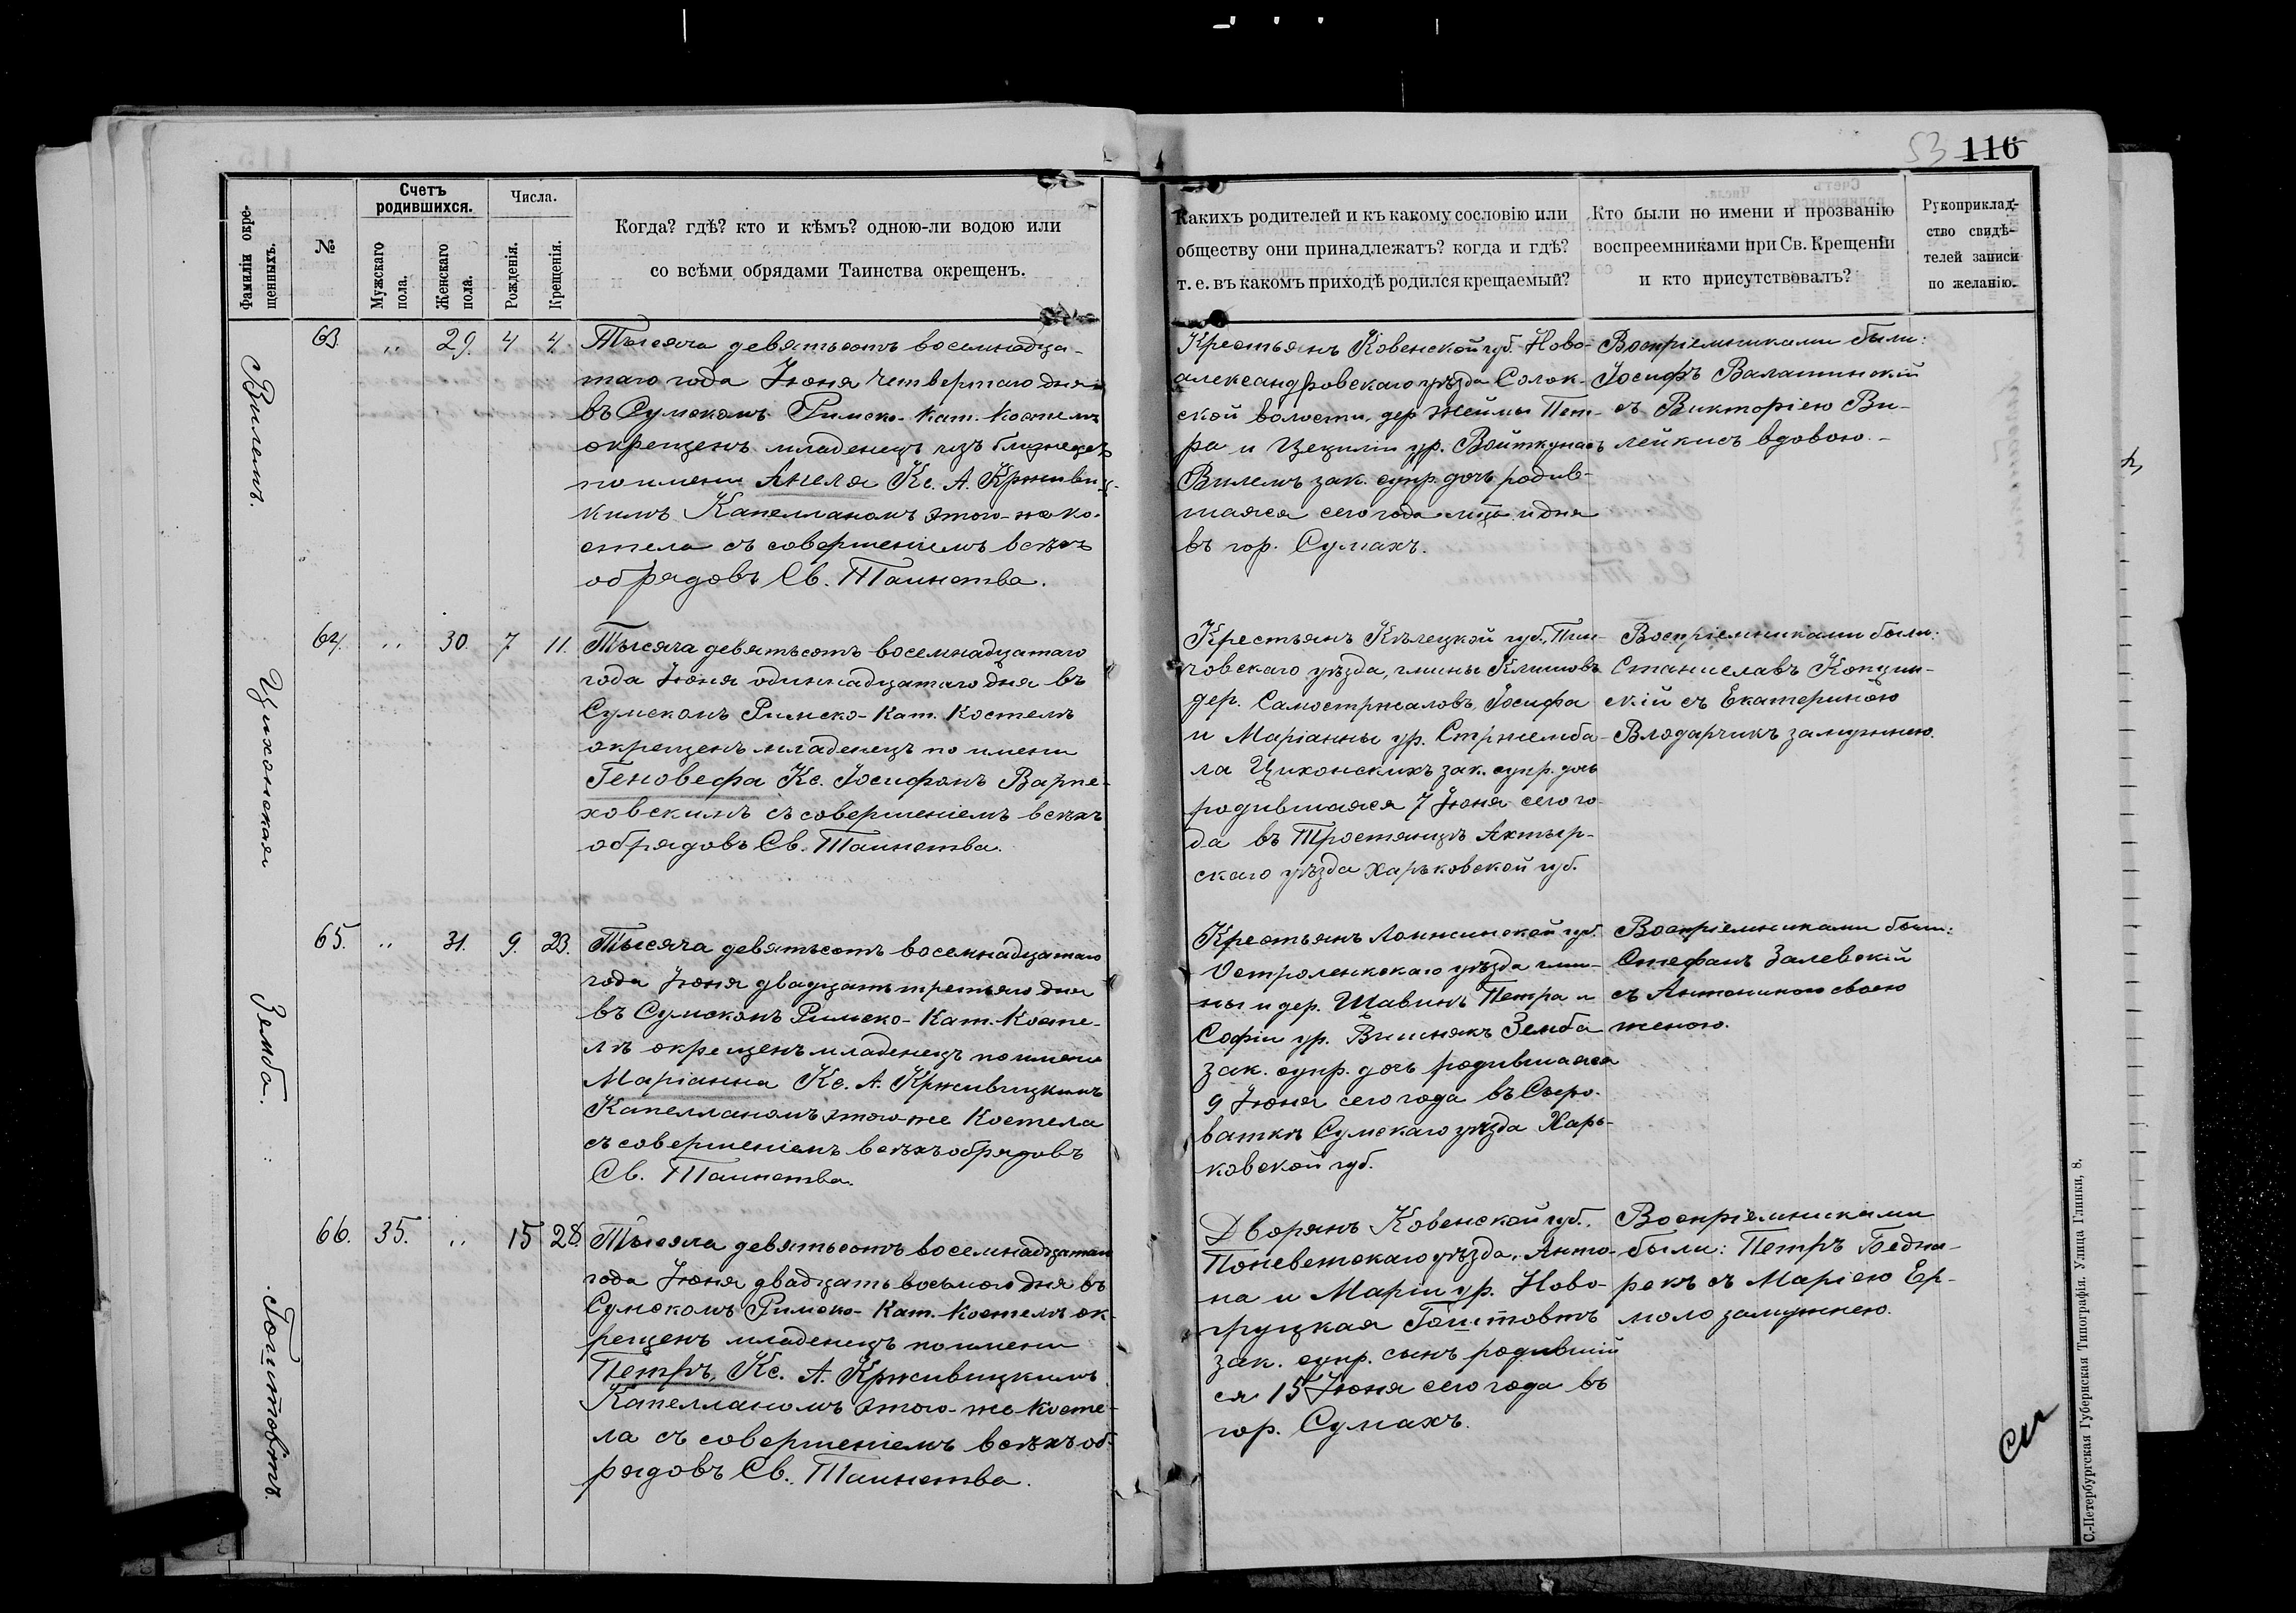 53 116
Фамиліи окре-
щенныхъ.
№
Счетъ
родившихся.
Мужскаго
пола.
Женскаго
пола.
Числа.
Рожденія.
Крещенія.
Когда? гдѣ? кто и кѣмъ? одною-ли водою или
со всѣми обрядами Таинства окрещенъ.
Какихъ родителей и къ какому сословію или
обществу они принадлежатъ? когда и гдѣ?
т. е. въ какомъ приходѣ родился крещаемый?
Кто были по имени и прозванію
воспреемниками при Св. Крещеніи
и кто присутствовалъ?
Рукоприклад-
ство свидѣ-
телей записи
по желанію.
Вилемъ.
63. „ 29. 4 4.
Тысяча девятьсотъ восемнадца-
таго года Іюня четвертаго дня
въ Сумскомъ Римско-Кат. Костелѣ
окрещенъ младенецъ изъ близнецовъ
по имени Анеля Кс. А. Крживиц-
кимъ Капелланомъ этого-же ко-
стела съ совершеніемъ всѣхъ
обрядовъ Св. Таинства.
Крестьянъ Ковенской губ. Ново-
александровскаго уѣзда Солок-
ской волости, дер. Жеймы Пет-
ра и Цециліи ур. Войткунасъ
Вилемъ зак. супр. дочь родив-
шаяся сего года м-ца и дня
въ гор. Сумахъ.
Воспріемниками были:
Іосифъ Валатинскій
съ Викторіею Ви-
лейкисъ вдовою.-
Цихонская
64. „ 30. 7 11.
Тысяча девятьсотъ восемнадцатаго
года Іюня одиннадцатаго дня въ
Сумскомъ Римско-Кат. Костелѣ
окрещенъ младенецъ по имени
Геновефа Кс. Іосифомъ Варпе-
ховскимъ съ совершеніемъ всѣхъ
обрядовъ Св. Таинства.
Крестьянъ Кѣлецкой губ., Пин-
човскаго уѣзда, гмины Климовъ
дер. Самостржаловъ, Іосифа
и Маріанны ур. Стржемба-
ла Цихонскихъ зак. супр. дочь
родившаяся 7 Іюня сего го-
да въ Тростянцѣ Ахтыр-
скаго уѣзда Харьковской губ.
Воспріемниками были:
Станиславъ Копцин-
скій съ Екатериною
Влодарчикъ замужнею.
Земба.
65. „ 31. 9. 23.
Тысяча девятьсотъ восемнадцатаго
года Іюня двадцать третьяго дня
въ Сумскомъ Римско-Кат. Косте-
лѣ окрещенъ младенецъ по имени
Маріанна Кс. А. Крживицкимъ
Капелланомъ этого-же Костела
съ совершеніемъ всѣхъ обрядовъ
Св. Таинства.
Крестьянъ Ломжинской губ.
Остроленкскаго уѣзда гми-
ны и дер. Шавинъ Петра и
Софіи ур. Вишнякъ Земба
зак. супр. дочь родившаяся
9 Іюня сего года въ Сыро-
ваткѣ Сумскаго уѣзда Харь-
ковской губ.
Воспріемниками были:
Стефанъ Залевскій
съ Антониною своею
женою.
Гоштовтъ.
66. 35. „ 15 28.
Тысяча девятьсотъ восемнадцатаго
года Іюня двадцать восьмого дня въ
Сумскомъ Римско-Кат. Костелѣ ок-
рещенъ младенецъ по имени
Петръ, Кс. А. Крживицкимъ
Капелланомъ этого-же Косте-
ла съ совершеніемъ всѣхъ об-
рядовъ Св. Таинства.
Дворянъ Ковенской губ.
Поневежскаго уѣзда, Анто-
на и Маріи ур. Ново-
груцкая Гоштовтъ
зак. супр. сынъ родившій
ся 15 Іюня сего года въ
гор. Сумахъ.
Воспріемниками
были: Петръ Бедна-
рекъ съ Маріею Ер-
моло замужнею.
С.-Петербургская Губернская Типографія. Улица Глинки, 8.